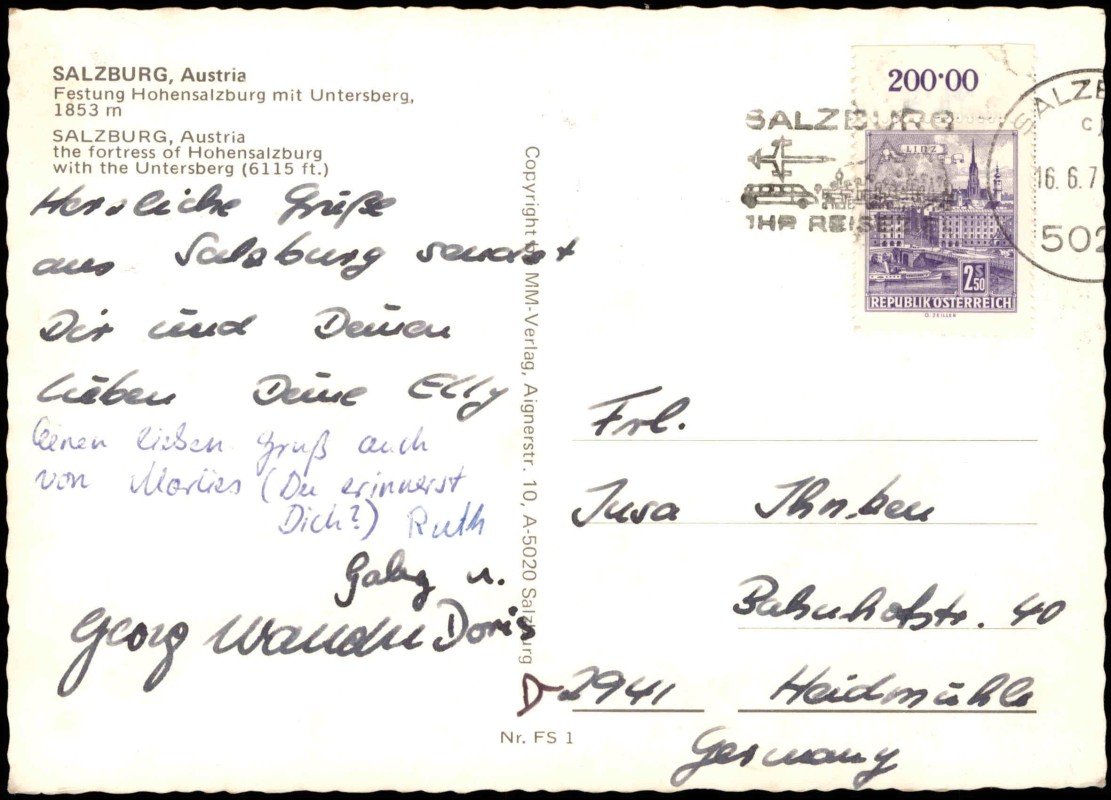 SALZBURG, Austria
Festung Hohensalzburg mit Untersberg,
1853 m
SALZBURG, Austria
the fortress of Hohensalzburg
with the Untersberg (6115 ft.)
Herzliche Grüße
aus Salzburg sendet
Dir und Deinen
Lieben Deine Elly
Einen lieben Gruß auch
von Marlies (Du erinnerst
Dich?) Ruth
Gaby u.
Georg Doris
Copyright by MM-Verlag, Aignerstr. 10, A-5020 Salzburg
Nr. FS 1
200·00
LINZ
2 S 50
REPUBLIK ÖSTERREICH
O. ZEILLER
SALZBURG
IHR REISE
SALZB
16.6.7
502
Frl.
Insa
Bahnhofstr. 40
D-2941 Heidmühle
Germany